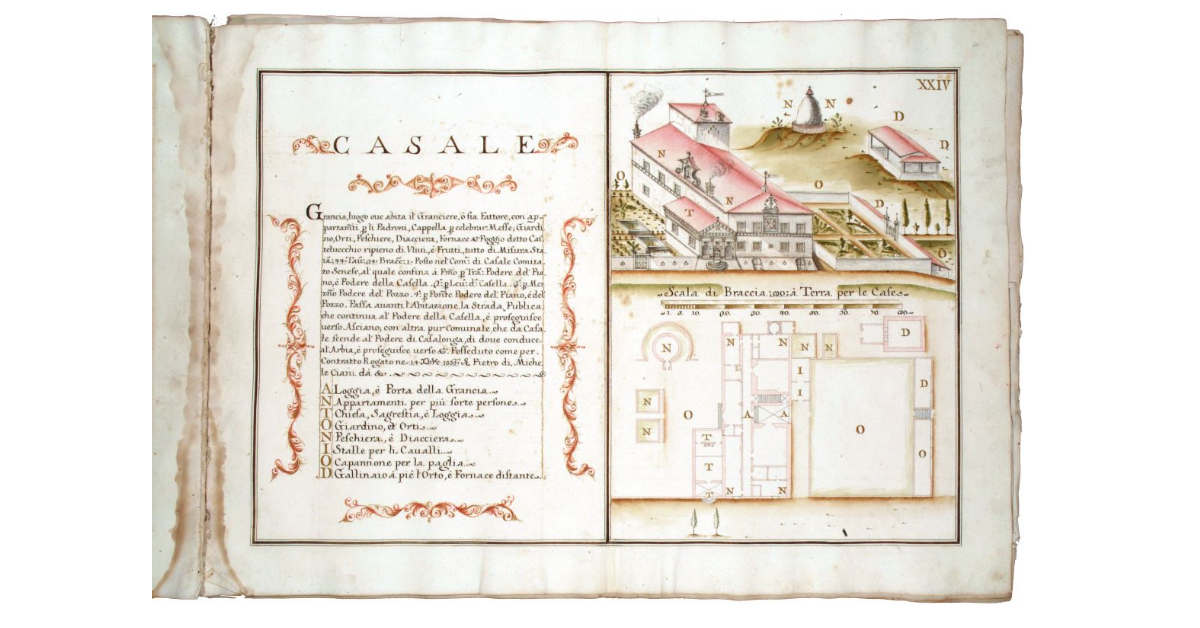 CASALE
Grancia, luogo oue abita il Granciere, ò sia Fattore, con ap-
partam̃ti p̱ li Padroni, Cappella p̱ celebrar Messe, Giardi
no, Orti, Peschiere, Diacciera, Fornace & Poggio detto Cas
telucchio ripieno di Vliui, è Frutti, tutto di Misura Sta
Posto nel Com: di Casale Comita
to Senese, al quale confina à Pm̃o p̱ Trã: Podere del Pia
no, è Podere della Casella. 2: p̱ Leu: dᵃ: Casella. 3: p̱ Mez
zm̃o Podere del Pozzo. 4: p̱ Ponẽte Podere del Piano, è del
Pozzo. Passa auanti l'Abitazione la Strada Publica
che continua al Podere della Casella, è proseguisce
verso Asciano, con altra pur Comunale che da Casa
le scende al Podere di Casalonga, di doue conduce
al Arbia, è proseguisce verso Posseduto come per
Contratto Rogato ne Pietro di Miche
le Ciani dà &c.
A Loggia, è Porta della Grancia
N Appartamenti per più sorte persone
T Chiesa, Sagrestia, è Loggia
O Giardino, et Orti
N Peschiera, è Diacciera
I Stalle per li Caualli
O Capannone per la paglia
D Gallinaio à piè l'Orto, è Fornace distante
XXIV
N N D
D
N O
O D
T N
O
Scala di Braccia 100: à Terra per le Case
N N N N N D
I D
N I
N O A A O
T O
T
T N N